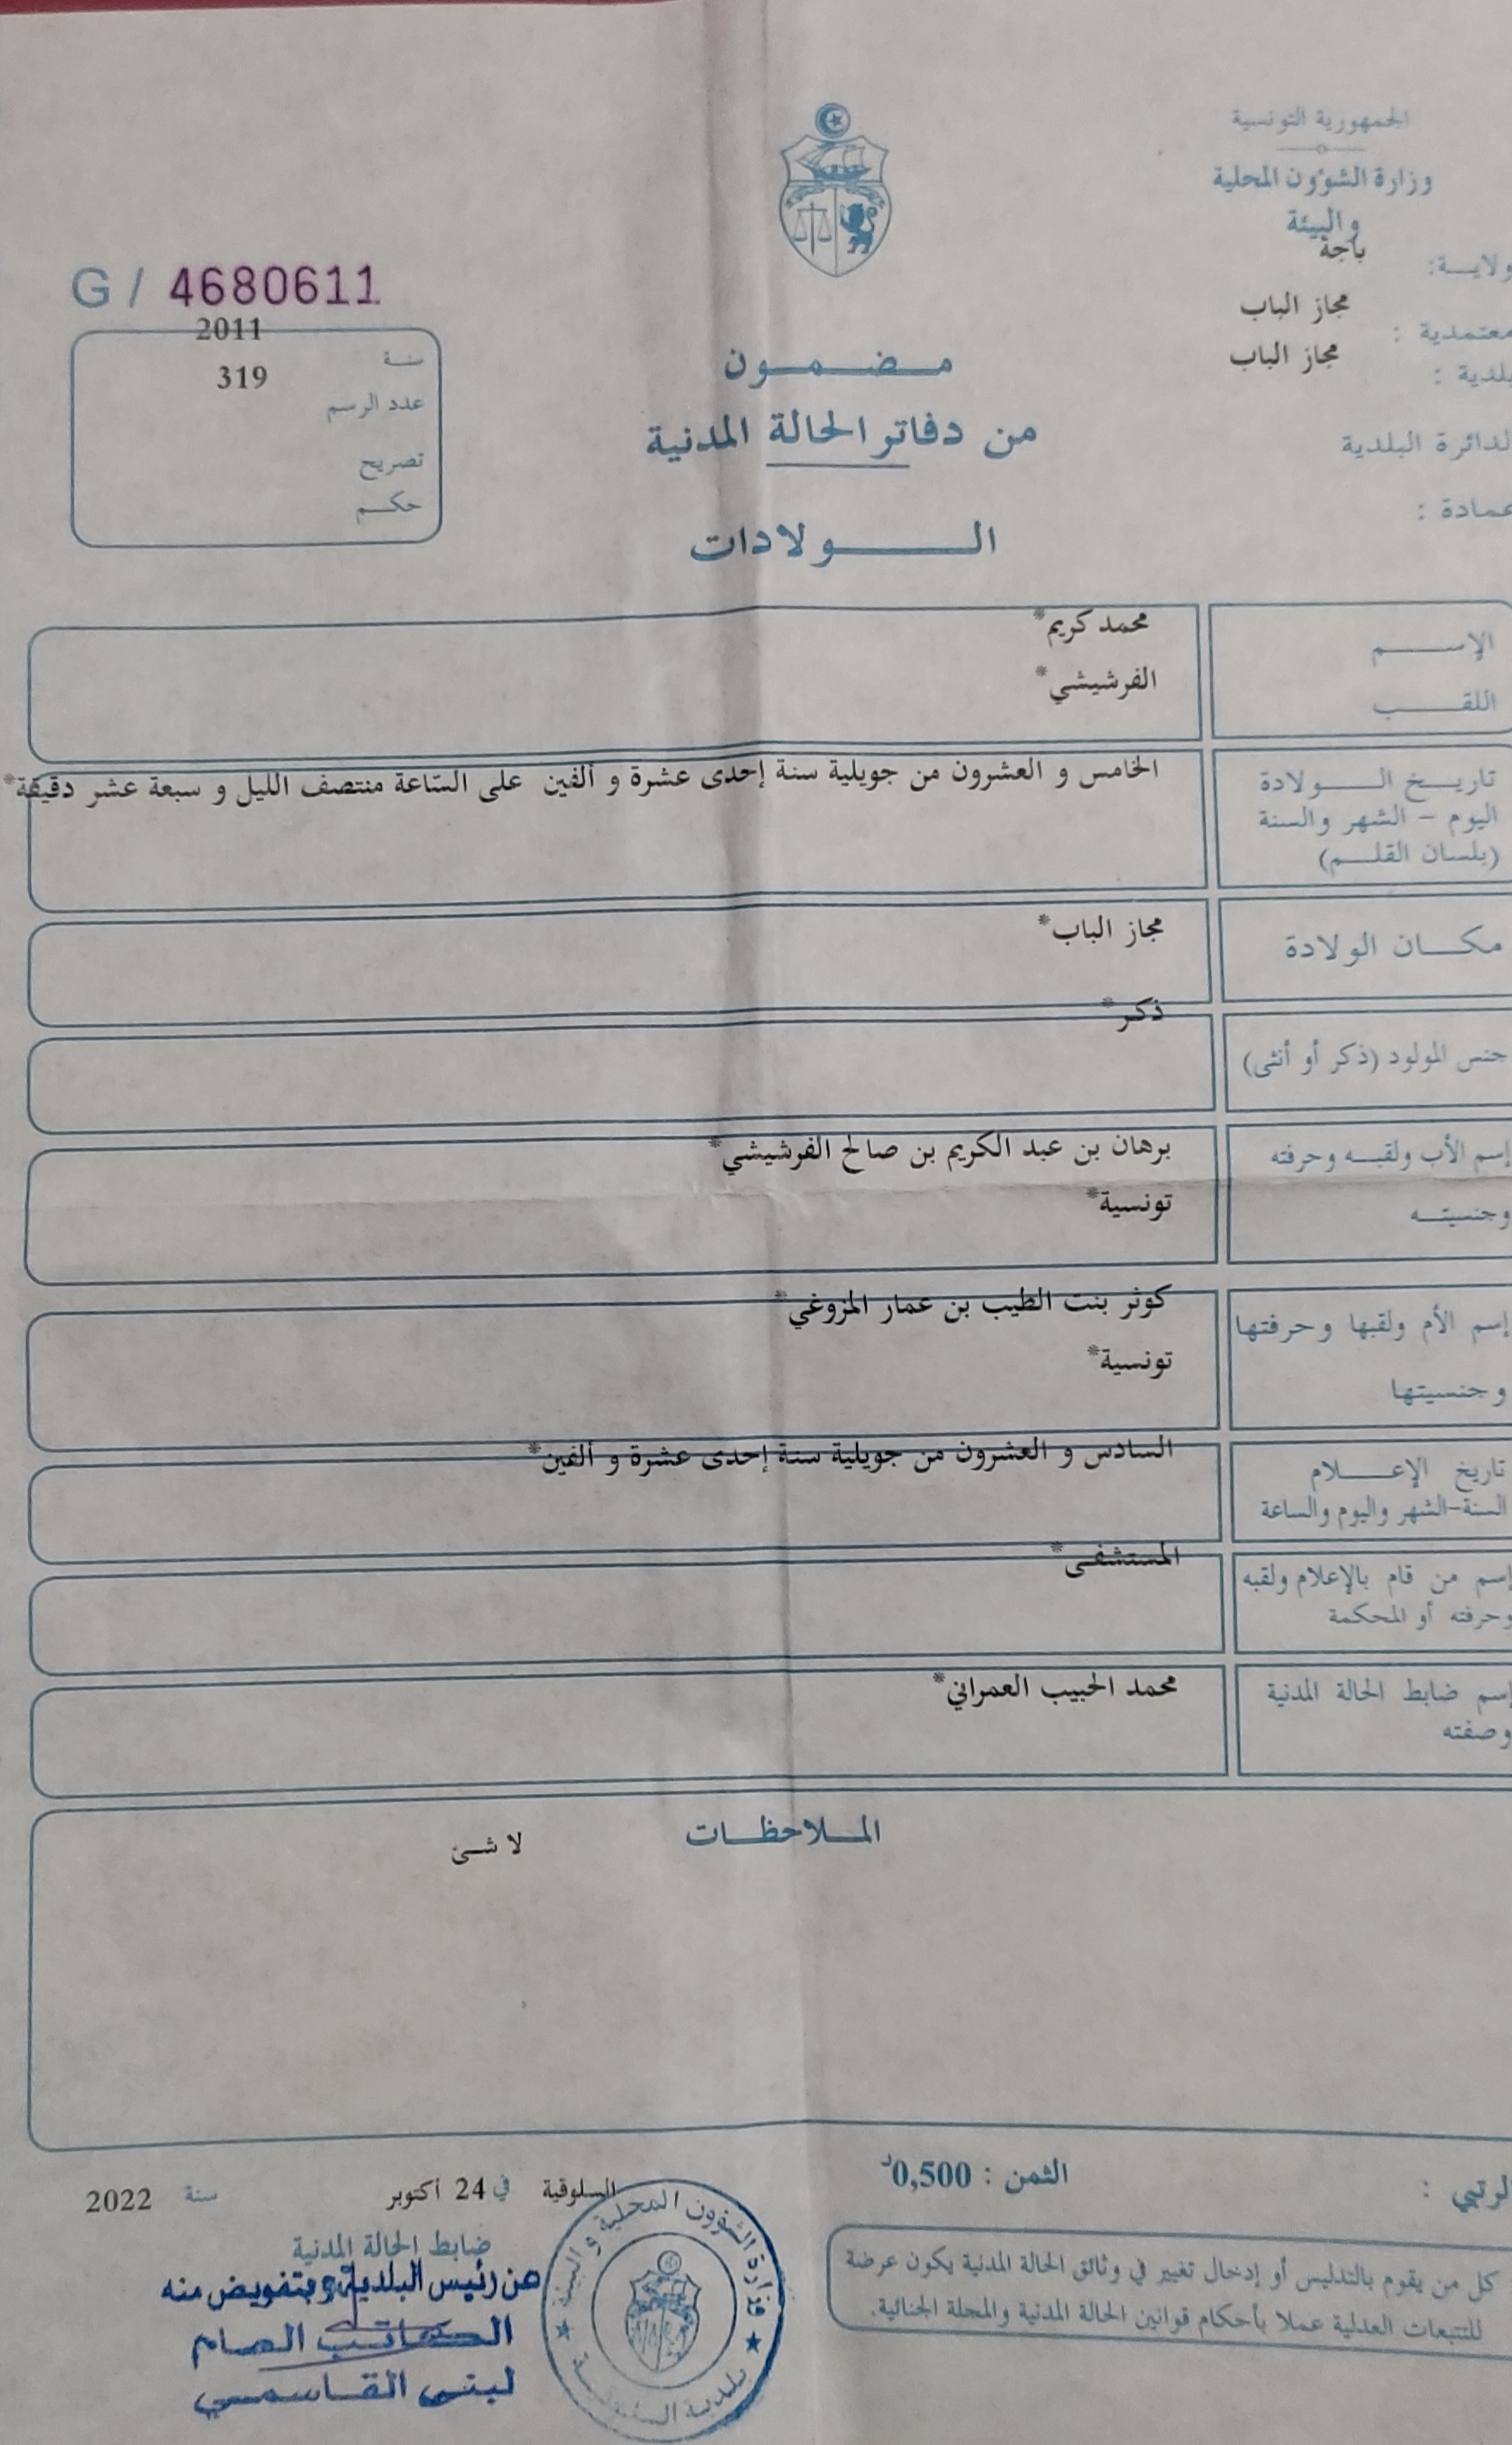 الجمهورية التونسية
وزارة الشؤون المحلية
والبيئة
ولايـــة: باجة
معتمدية : مجاز الباب
بلدية : مجاز الباب
الدائرة البلدية
عمادة :
G / 4680611
سنة 2011
عدد الرسم 319
تصريح
حكـــم
مـضـمـون
من دفاتر الحالة المدنية
الـــولادات
الإســـم محمد كريم*
اللقـــب الفرشيشي*
تاريـــخ الـــولادة الخامس و العشرون من جويلية سنة إحدى عشرة و ألفين على السّاعة منتصف الليل و سبعة عشر دقيقة*
اليوم – الشهر والسنة
(بلسان القلـــم)
مكـــان الولادة مجاز الباب*
جنس المولود (ذكر أو أنثى) ذكر*
إسم الأب ولقبـــه وحرفته برهان بن عبد الكريم بن صالح الفرشيشي*
وجنسيتـــه تونسية*
إسم الأم ولقبها وحرفتها كوثر بنت الطيب بن عمار المزوغي*
وجنسيتها تونسية*
تاريخ الإعـــلام السادس و العشرون من جويلية سنة إحدى عشرة و ألفين*
السنة-الشهر واليوم والساعة
إسم من قام بالإعلام ولقبه المستشفى*
وحرفته أو المحكمة
إسم ضابط الحالة المدنية محمد الحبيب العمراني*
وصفته
المـــلاحظـــات
لا شئ
الرتبي :
الثمن : 0,500د
السلوقية في 24 أكتوبر سنة 2022
ضابط الحالة المدنية
عن رئيس البلدية وبتفويض منه
الكاتب العام
لبنى القاسمي
وزارة الشؤون المحلية و البيئة
بلدية السلوقية
كل من يقوم بالتدليس أو إدخال تغيير في وثائق الحالة المدنية يكون عرضة
للتتبعات العدلية عملا بأحكام قوانين الحالة المدنية والمجلة الجنائية.